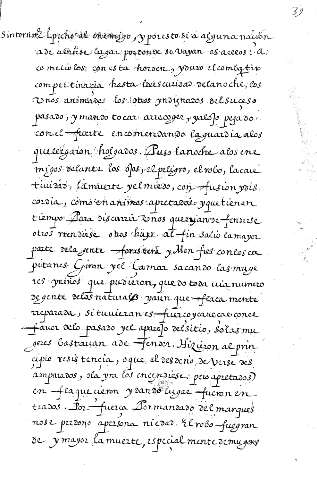 39
el pecho al enemigo, y por esto si a alguna nacion
a de auerse lugar por donde se vayan es a estos: A
cometiolos con esta horden, y duro el combatir
con pertinazia hasta la escuridad de la noche, los
unos animados los otros yndignados del suceso
pasado, y mando tocar a recoger, y alojo pegado
con el fuerte encomendando la guardia a los
que tenian holgados. Puso la noche a los ene
migos delante los ojos, el peligro, el robo, la cau
tividad, la muerte y el miedo, confusion y dis
cordia, como en animos apretados y que tienen
tiempo Para discurrir unos querian defenderse
otros rendirse otros huyr. al fin salio la mayor
parte de la gente forastera y Monfies con los ca
pitanes Giron y el Camar sacando las muge
res y niños que pudieron, quedo toda via numero
de gente de los naturales y aun que flaca mente
reparada, si tuvieran esfuerco y auecar con el
fauor de lo pasado y el aparejo del sitio, solas mu
geres bastavan a defender. Hizieron al prin
cipio resistencia, o que el desdeño de verse des
amparados, o la yra los encendiese pero apretados
enflaquecieron y dando lugar fueron en
trados. Por fuerca Por mandado del marques
no se perdono a persona ni edad. El robo fue gran
de y mayor la muerte, especial mente de mugeres